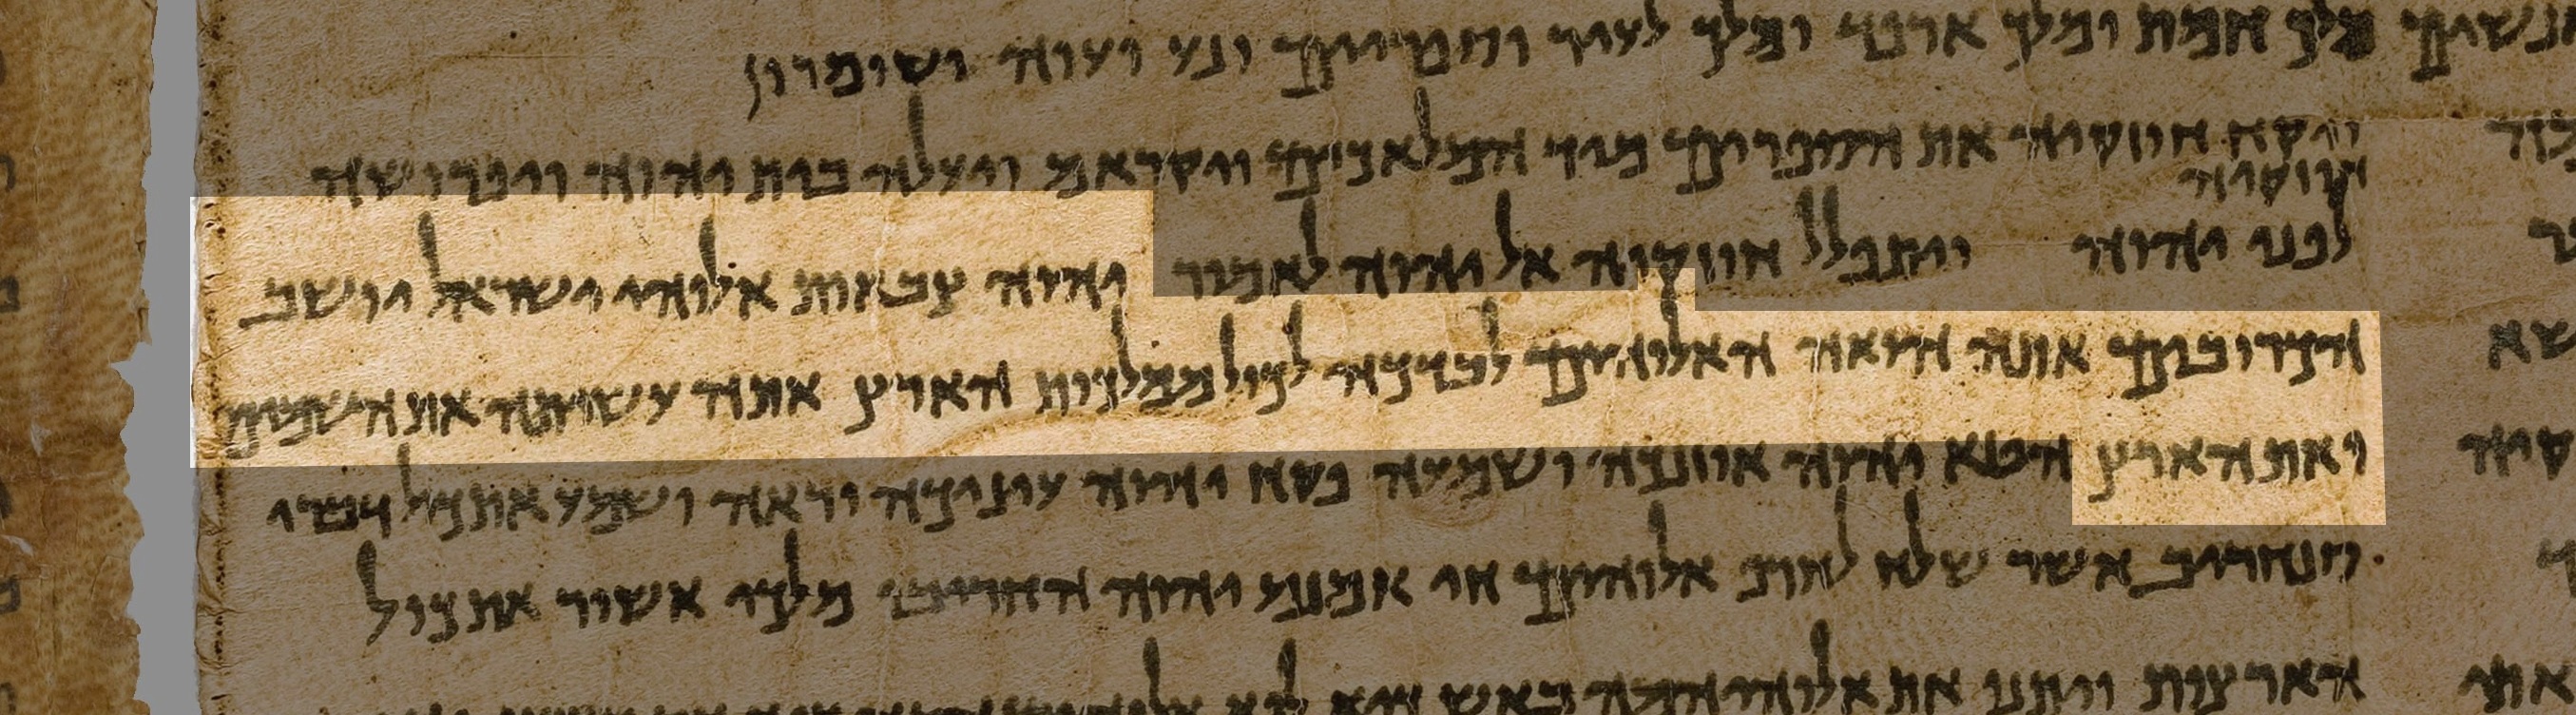 מלך חמת ומלך ארפד ומלך לעיר ספרוים ונע ועוה ושומרון
ויקח חזקיה את הספרים מיד המלאכים ויקראם ויעלה בית יהוה ויפרושה
חזקיה
לפני יהוה ויתפלל חזקיה אל יהוה לאמור יהוה צבאות אלוהי ישראל יושב
הכרובים אתה הואה האלוהים לבדכה לכול ממלכות הארץ אתה עשיתה את השמים
ואת הארץ הטא יהוה אוזנכה ושמעה פקח יהוה עיניכה וראה ושמע את כול דברי
סנחריב אשר שלח לחרף אלוהים חי אמנם יהוה החריבו מלכי אשור את כול
הארצות ויתנו את אלוהיהמה באש